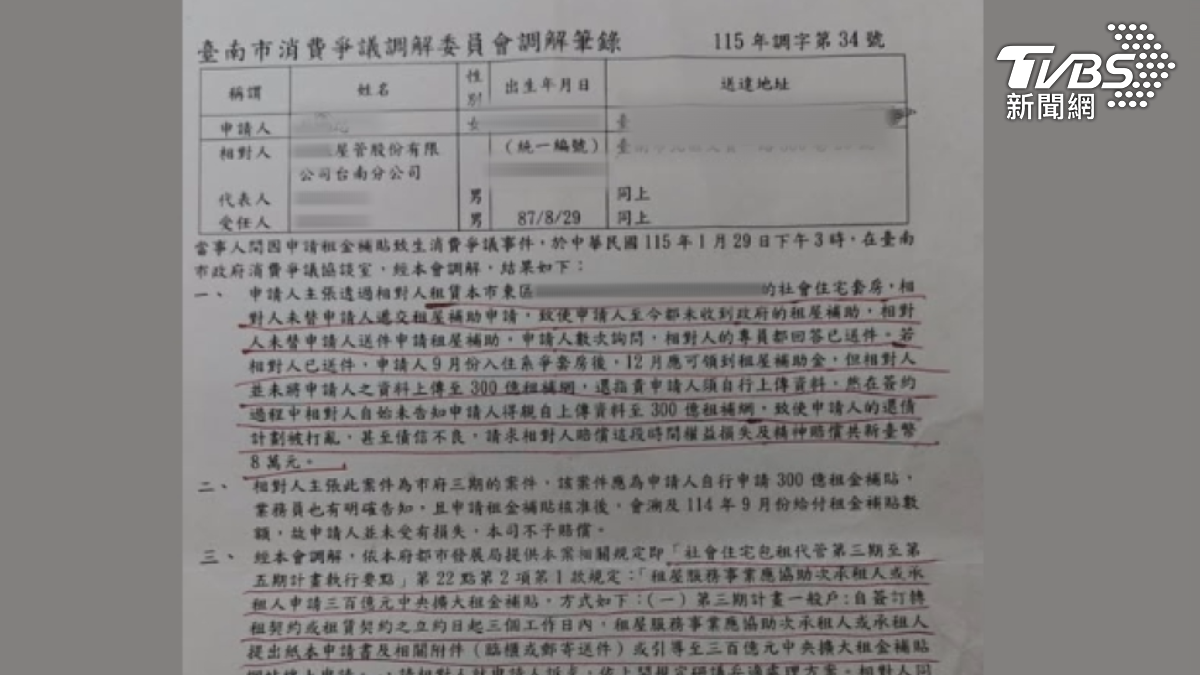 臺南市消費爭議調解委員會調解筆錄 115 年調字第 34 號
TVBS
新聞網
稱謂 姓名 性別 出生年月日 送達地址
申請人 女 臺
相對人 屋管股份有限公司台南分公司 (統一編號)
代表人 男 同上
受任人 男 87/8/29 同上
當事人間因申請租金補貼致生消費爭議事件，於中華民國 115 年 1 月 29 日下午 3 時，在臺南
市政府消費爭議協談室，經本會調解，結果如下：
一、 申請人主張透過相對人租賃本市東區 的社會住宅套房，相
對人未替申請人遞交租屋補助申請，致使申請人至今都未收到政府的租屋補助，相對
人未替申請人送件申請租屋補助，申請人數次詢問，相對人的專員都回答已送件。若
相對人已送件，申請人 9 月份入住系爭套房後，12 月應可領到租屋補助金，但相對人
並未將申請人之資料上傳至 300 億租補網，還指責申請人須自行上傳資料，然在簽約
過程中相對人自始未告知申請人得親自上傳資料至 300 億租補網，致使申請人的還債
計劃被打亂，甚至債信不良，請求相對人賠償這段時間權益損失及精神賠償共新臺幣
8 萬元。
二、 相對人主張此案件為市府三期的案件，該案件應為申請人自行申請 300 億租金補貼，
業務員也有明確告知，且申請租金補貼核准後，會溯及 114 年 9 月份給付租金補貼數
額，故申請人並未受有損失，本司不予賠償。
三、 經本會調解，依本府都市發展局提供本案相關規定即「社會住宅包租代管第三期至第
五期計畫執行要點」第 22 點第 2 項第 1 款規定：「租屋服務事業應協助次承租人或承
租人申請三百億元中央擴大租金補貼，方式如下：(一) 第三期計畫一般戶：自簽訂轉
租契約或租賃契約之立約日起三個工作日內，租屋服務事業應協助次承租人或承租人
提出紙本申請書及相關附件（臨櫃或郵寄送件）或引導至三百億元中央擴大租金補貼